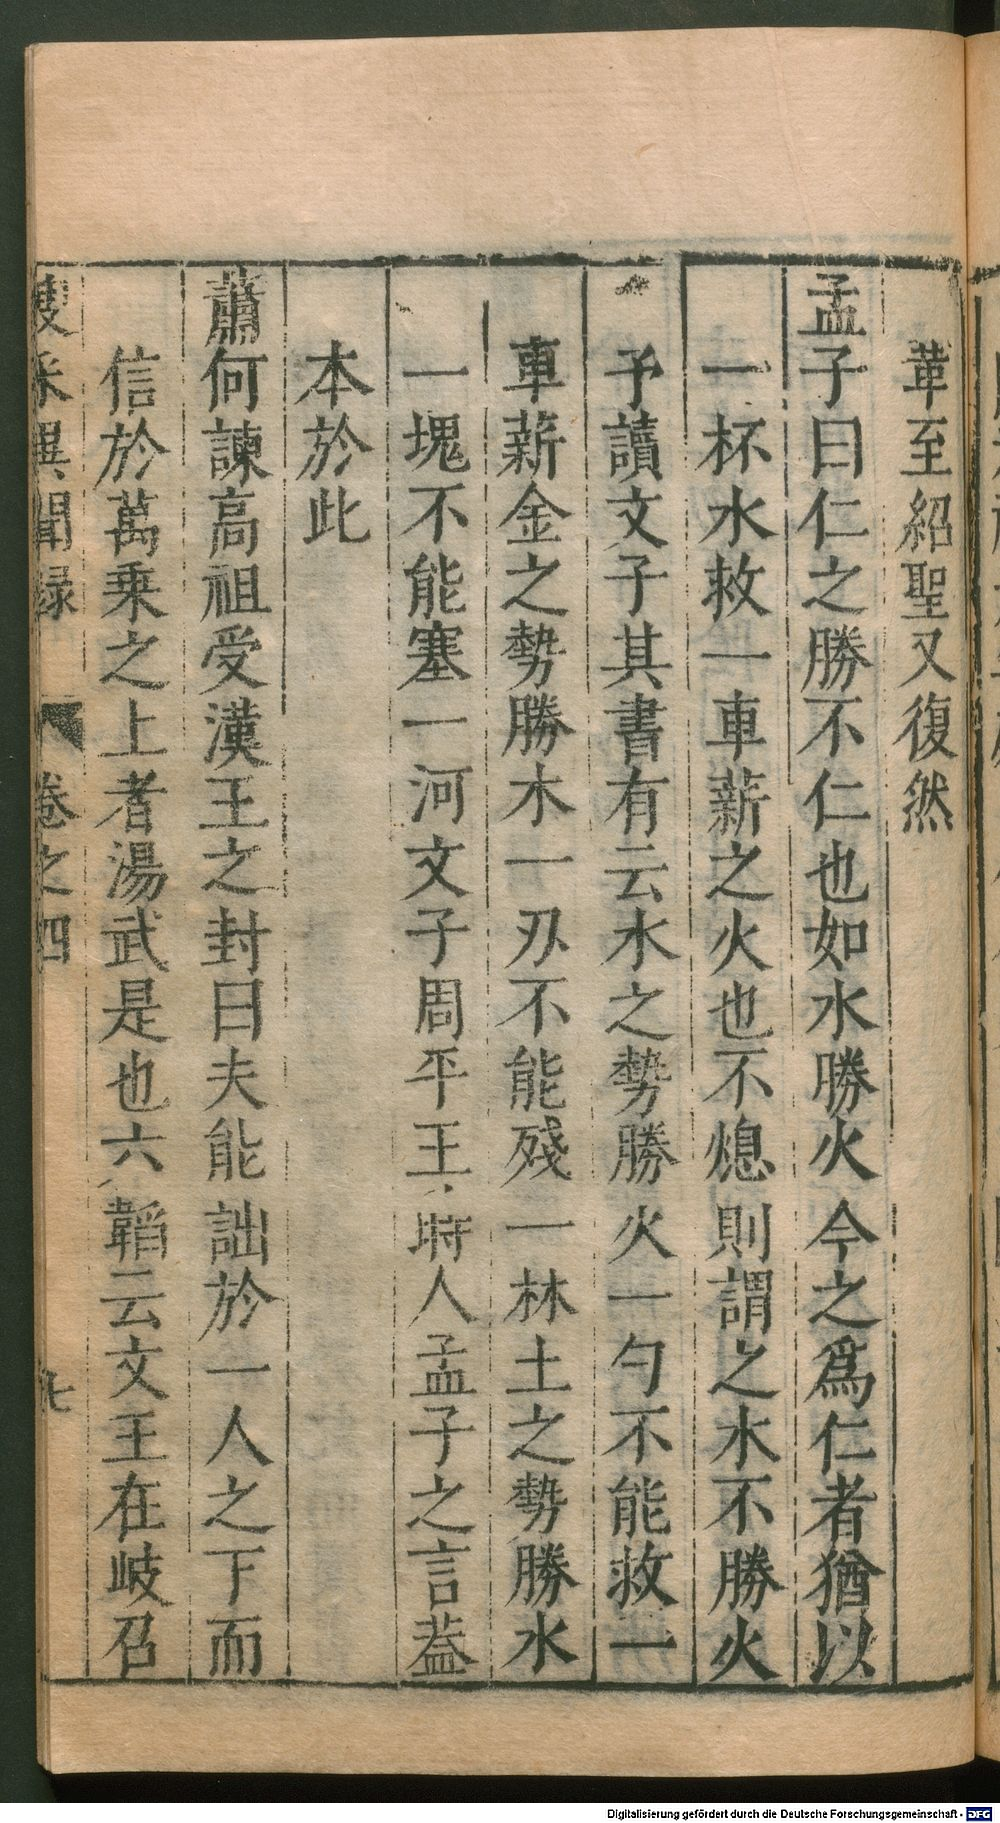 革至紹聖又復然
孟子曰仁之勝不仁也如水勝火今之爲仁者猶以
一杯水救一車薪之火也不熄則謂之水不勝火
予讀文子其書有云水之勢勝火一勺不能救一
車薪金之勢勝木一刃不能殘一林土之勢勝水
一塊不能塞一河文子周平王時人孟子之言葢
本於此
蕭何諫高祖受漢王之封曰夫能詘於一人之下而
信於萬乗之上者湯武是也六韜云文王在岐召
異聞録 卷之四 七
Digitalisierung gefördert durch die Deutsche Forschungsgemeinschaft - DFG